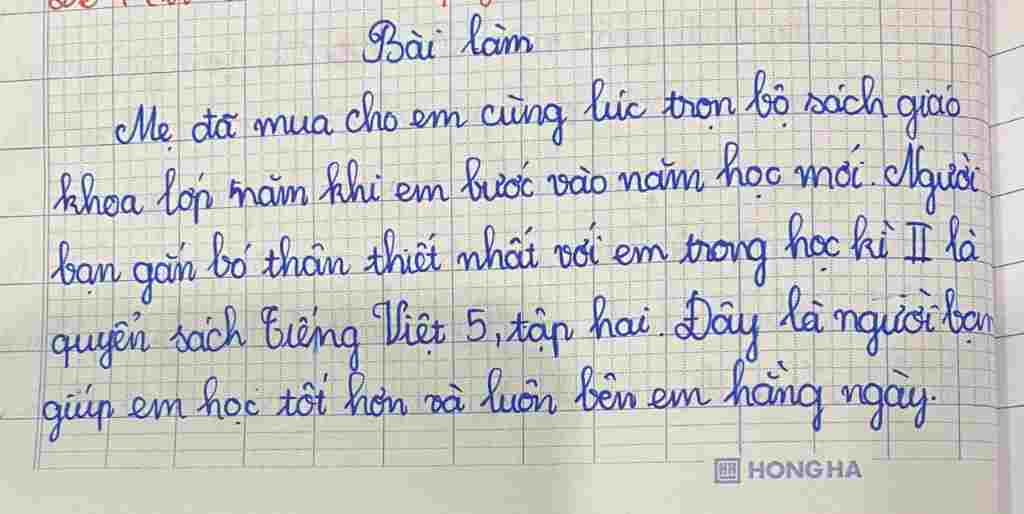 Bài làm
Mẹ đã mua cho em cùng lúc trọn bộ sách giáo
khoa lớp năm khi em bước vào năm học mới. Người
bạn gắn bó thân thiết nhất với em trong học kì II là
quyển sách Tiếng Việt 5, tập hai. Đây là người bạn
giúp em học tốt hơn và luôn bên em hằng ngày.
HONG HA